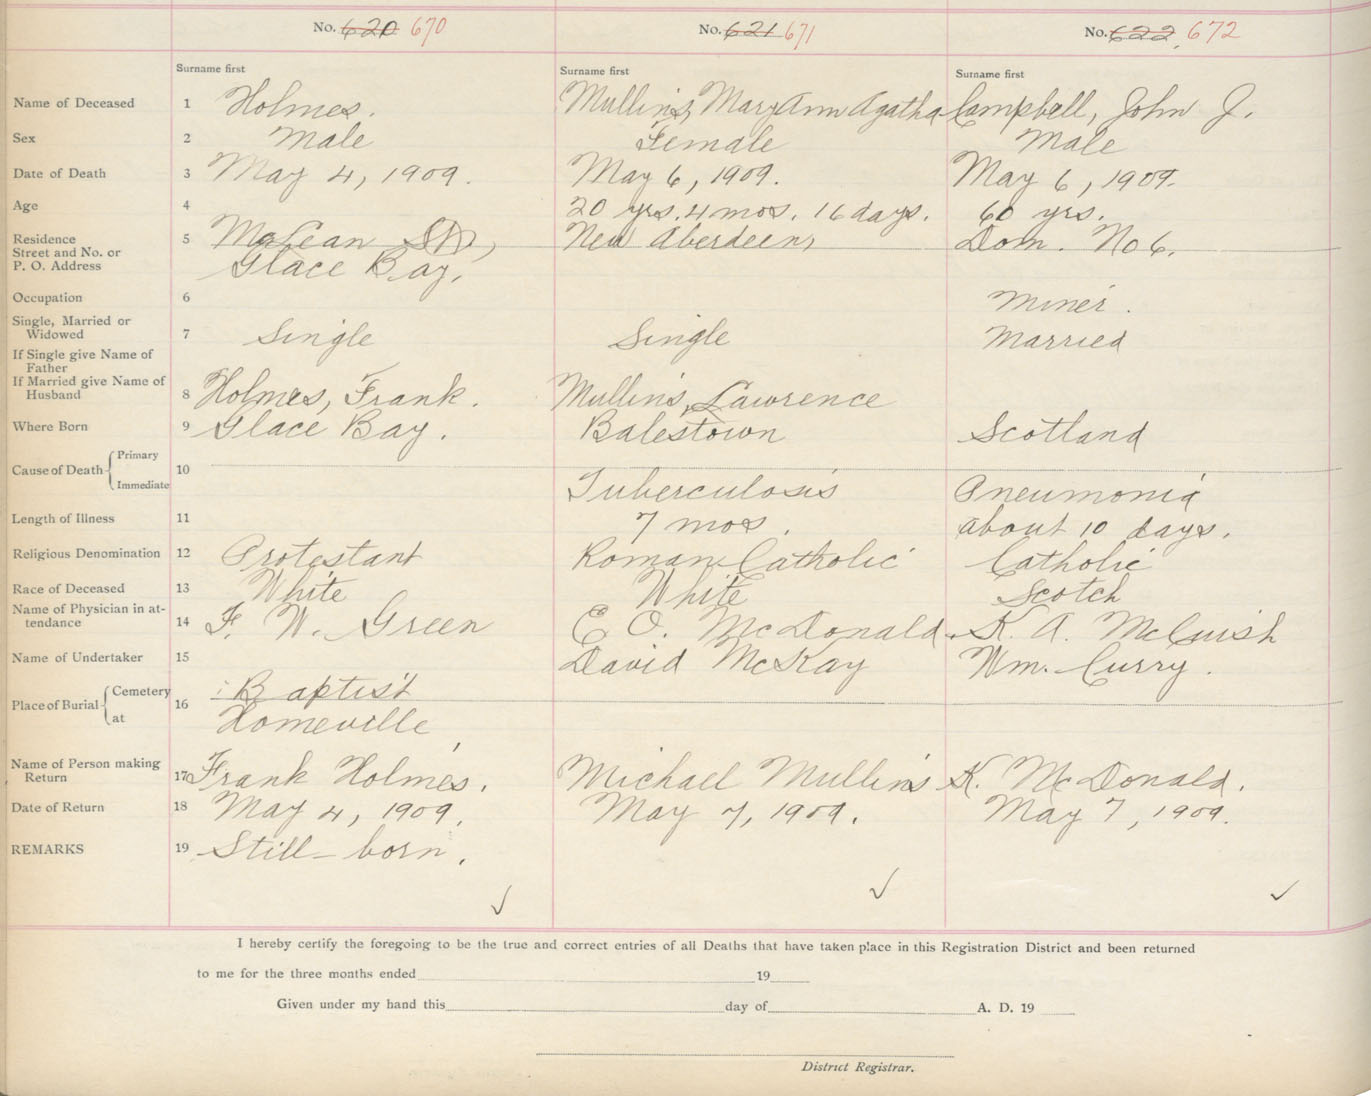 No. 620 670
No. 621 671
No. 622 672
Surname first
Surname first
Surname first
Name of Deceased 1 Holmes. Mullins, Mary Ann Agatha Campbell, John J.
Sex 2 Male Female Male
Date of Death 3 May 4, 1909. May 6, 1909. May 6, 1909.
Age 4 20 yrs. 4 mos. 16 days. 60 yrs.
Residence 5 McLean St, New Aberdeen, Dom. No 6.
Street and No. or
P. O. Address Glace Bay.
Occupation 6 Miner.
Single, Married or
Widowed 7 Single Single Married
If Single give Name of
Father
If Married give Name of
Husband 8 Holmes, Frank. Mullins, Lawrence
Where Born 9 Glace Bay. Balestown Scotland
Cause of Death Primary 10
Immediate Tuberculosis Pneumonia
Length of Illness 11 7 mos. about 10 days.
Religious Denomination 12 Protestant Roman Catholic Catholic
Race of Deceased 13 White White Scotch
Name of Physician in at-
tendance 14 F. W. Green E O. McDonald. K. A. McCuish
Name of Undertaker 15 David McKay Wm. Curry.
Place of Burial Cemetery 16 Baptist
at Homeville,
Name of Person making
Return 17 Frank Holmes. Michael Mullins K. McDonald.
Date of Return 18 May 4, 1909. May 7, 1909. May 7, 1909.
REMARKS 19 Still-born.
I hereby certify the foregoing to be the true and correct entries of all Deaths that have taken place in this Registration District and been returned
to me for the three months ended 19
Given under my hand this day of A. D. 19
District Registrar.